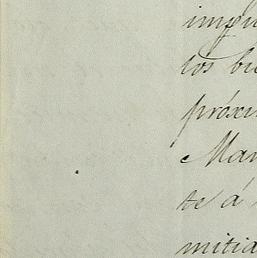 impu
tos bu
próxi
Man
te á
mitia